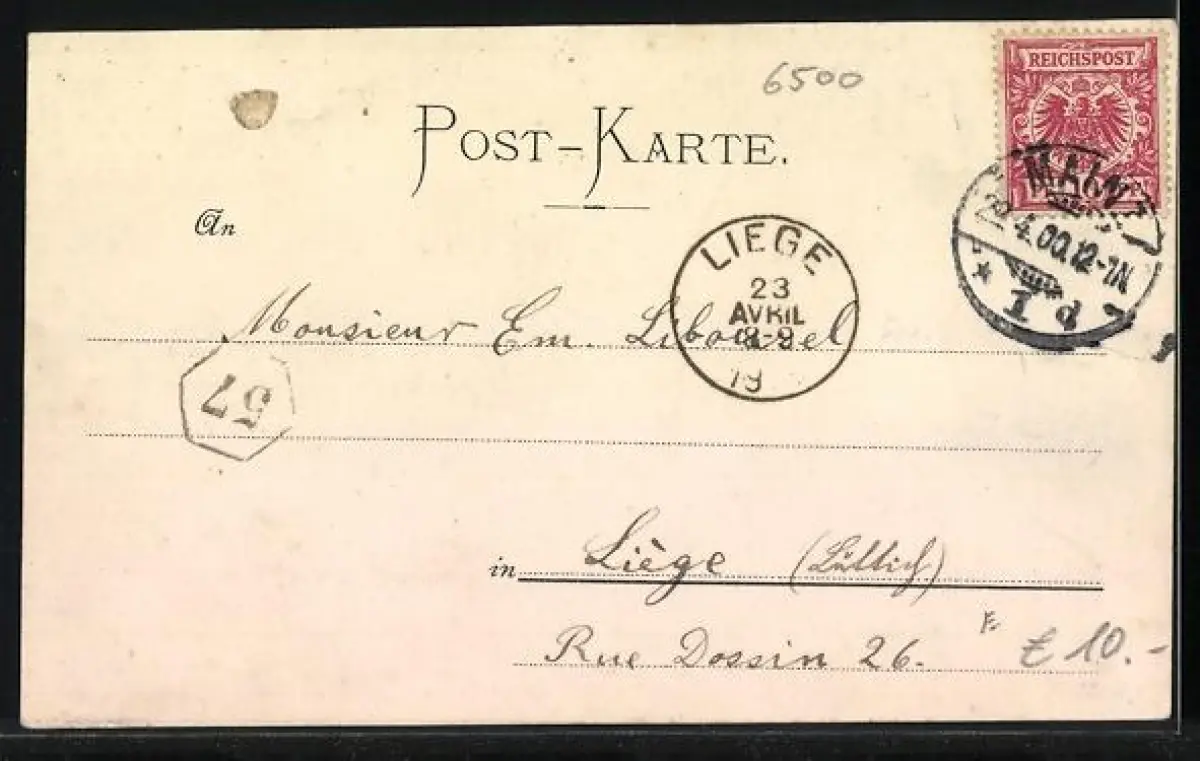 6500
REICHSPOST
POST-KARTE.
An
MAINZ
4.00.12-1N
* 1 d
LIEGE
23
AVRIL
8-9
19
Monsieur Em.
57
in Liège (Lüttich)
Rue Dossin 26.
€ 10.-